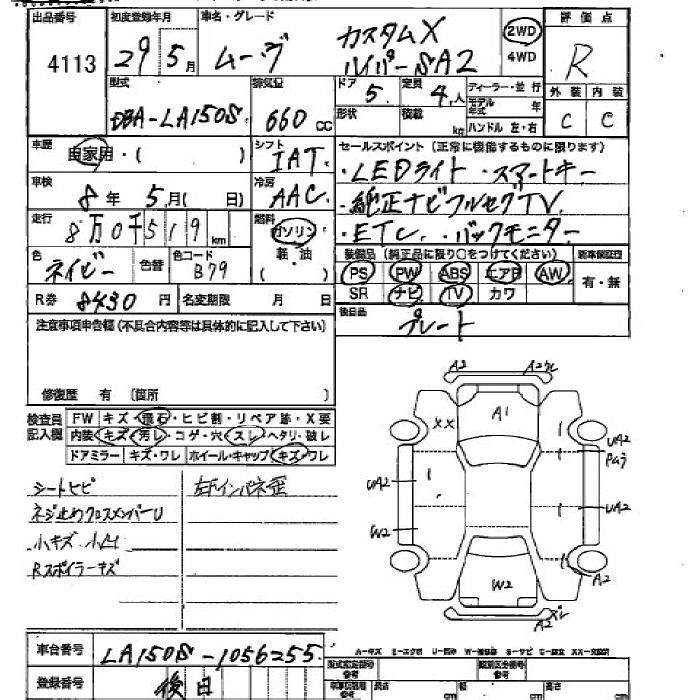 出品番号 初度登録年月 車名・グレード 評価点
4113 29年 5月 ムーヴ カスタムX ハイパーSA2 2WD 4WD R
型式 排気量 ドア 定員 ディーラー・並行 外装 内装
DBA-LA150S 660cc 5 4人 モデル年式 年 C C
形状 積載 kg ハンドル 左・右
車歴 自家用・( ) シフト IAT セールスポイント(正常に機能するものに限ります)
・LEDライト ・スマートキー
車検 8年 5月( 日) 冷房 AAC ・純正ナビフルセグTV
走行 8万0千519km 燃料 ガソリン 軽油 ( ) ・ETC ・バックモニター
色 ネイビー 色替 色コード B79 装備品(純正品に限り○をつけてください) 新車保証書
PS PW ABS エアB AW 有・無
R券 8430円 名変期限 月 日 SR ナビ TV カワ
後日品 プレート
注意事項申告欄(不具合内容等は具体的に記入して下さい)
修復歴 有 〔箇所 〕
検査員記入欄 FW キズ・飛石・ヒビ割・リペア跡・X要
内装 キズ・汚レ・コゲ・穴・スレ・ヘタリ・破レ
ドアミラー キズ・ワレ ホイール・キャップ キズ・ワレ
シートヒビ 左Fインパネ歪
ネジ止めクロスメンバーU
小キズ 小凹
Rスポイラーキズ
A2 A2
A1
XX
UA2
UA2
UA2
W2
W2
A2
A2 ズレ
車台番号 LA150S-1056255
A-キズ U-凹み W-補修跡 S-サビ C-腐食 XX-交換済
登録番号 後日 型式指定番号 類別区分番号
長さ cm 幅 cm 高さ cm